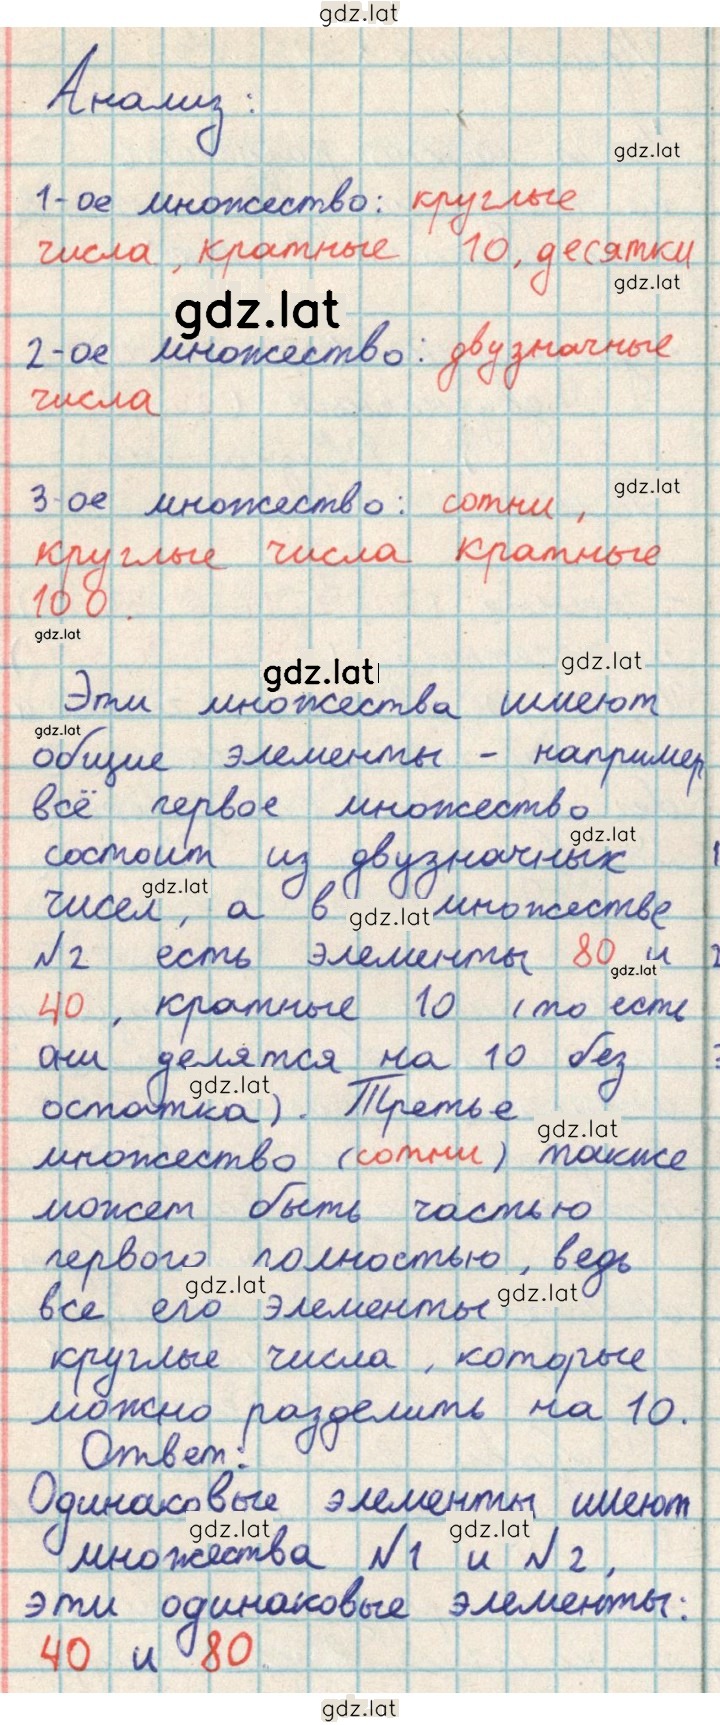 gdz.lat
Анализ:
gdz.lat
1-ое множество: круглые
числа, кратные 10, десятки
gdz.lat
gdz.lat
2-ое множество: двузначные
числа
gdz.lat
3-ое множество: сотни,
круглые числа кратные
100.
gdz.lat
gdz.lat
gdz.lat
Эти множества имеют
gdz.lat
общие элементы - например
всё первое множество
gdz.lat
состоит из двузначных
gdz.lat
чисел, а в множестве
gdz.lat
№2 есть элементы 80 и
gdz.lat
40, кратные 10 (то есть
они делятся на 10 без
gdz.lat
остатка). Третье
gdz.lat
множество (сотни) также
может быть частью
первого полностью, ведь
gdz.lat
gdz.lat
все его элементы
круглые числа, которые
можно разделить на 10.
Ответ:
Одинаковые элементы имеют
gdz.lat
gdz.lat
множества №1 и №2,
эти одинаковые элементы:
gdz.lat
40 и 80
gdz.lat